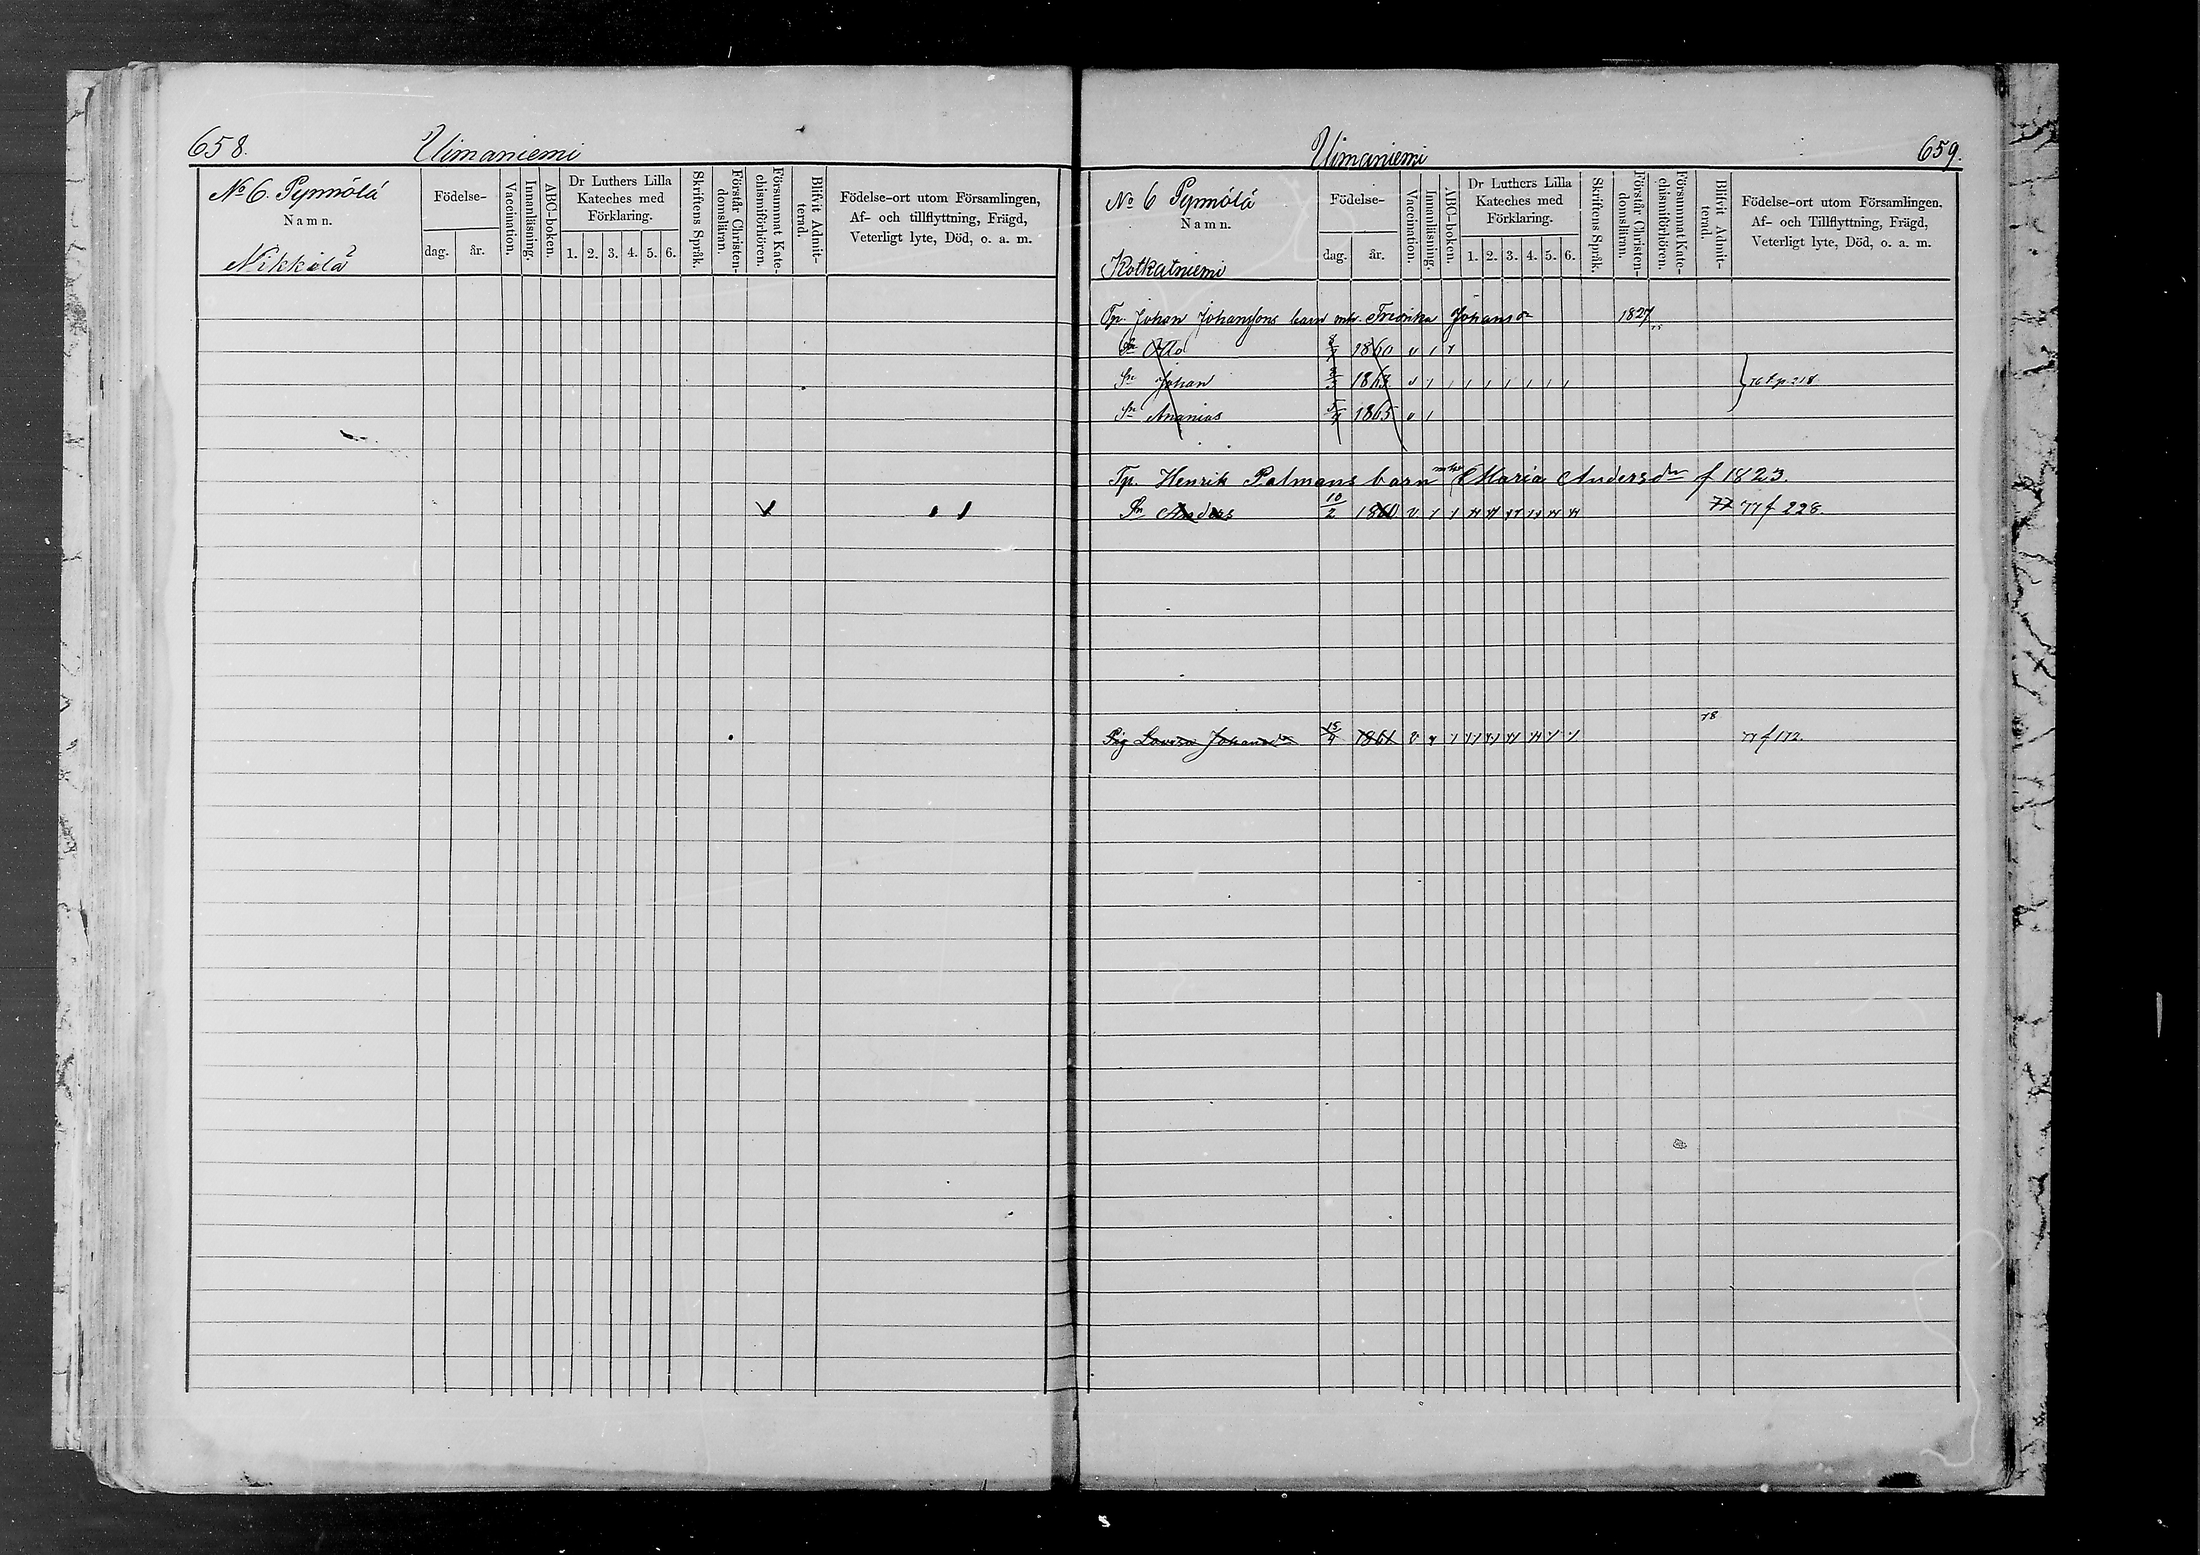 658.
Uimaniemi
No 6. Pynnölä
Namn.
Nikkilä
Födelse-
dag.
år.
Vaccination.
Innanläsning.
ABC-boken.
Dr Luthers Lilla
Kateches med
Förklaring.
1. 2. 3. 4. 5. 6.
Skriftens Språk.
Förstår Christen-
domsläran.
Försummat Kate-
chismiförhören.
Blifvit Admit-
terad.
Födelse-ort utom Församlingen,
Af- och tillflyttning, Frägd,
Veterligt lyte, Död, o. a. m.
Uimaniemi
659.
No 6 Pynnölä
Namn.
Kotkatniemi
Födelse-
dag.
år.
Vaccination.
Innanläsning.
ABC-boken.
Dr Luthers Lilla
Kateches med
Förklaring.
1. 2. 3. 4. 5. 6.
Skriftens Språk.
Förstår Christen-
domsläran.
Försummat Kate-
chismiförhören.
Blifvit Admit-
terad.
Födelse-ort utom Församlingen,
Af- och Tillflyttning, Frägd,
Veterligt lyte, Död, o. a. m.
Tp. Johan Johanssons barn Fredrika Johansdr 1827
Sn Otto 1860
Sn Johan 1863 76 f p. 218
Sn Ananias 1865
Tp. Henrik Palmans barn Maria Andersdr f 1823.
Sn Anders 10/2 1860 77 77 f 228.
78
Pig Lovisa Johansdr 15/9 1861 77 f 172.